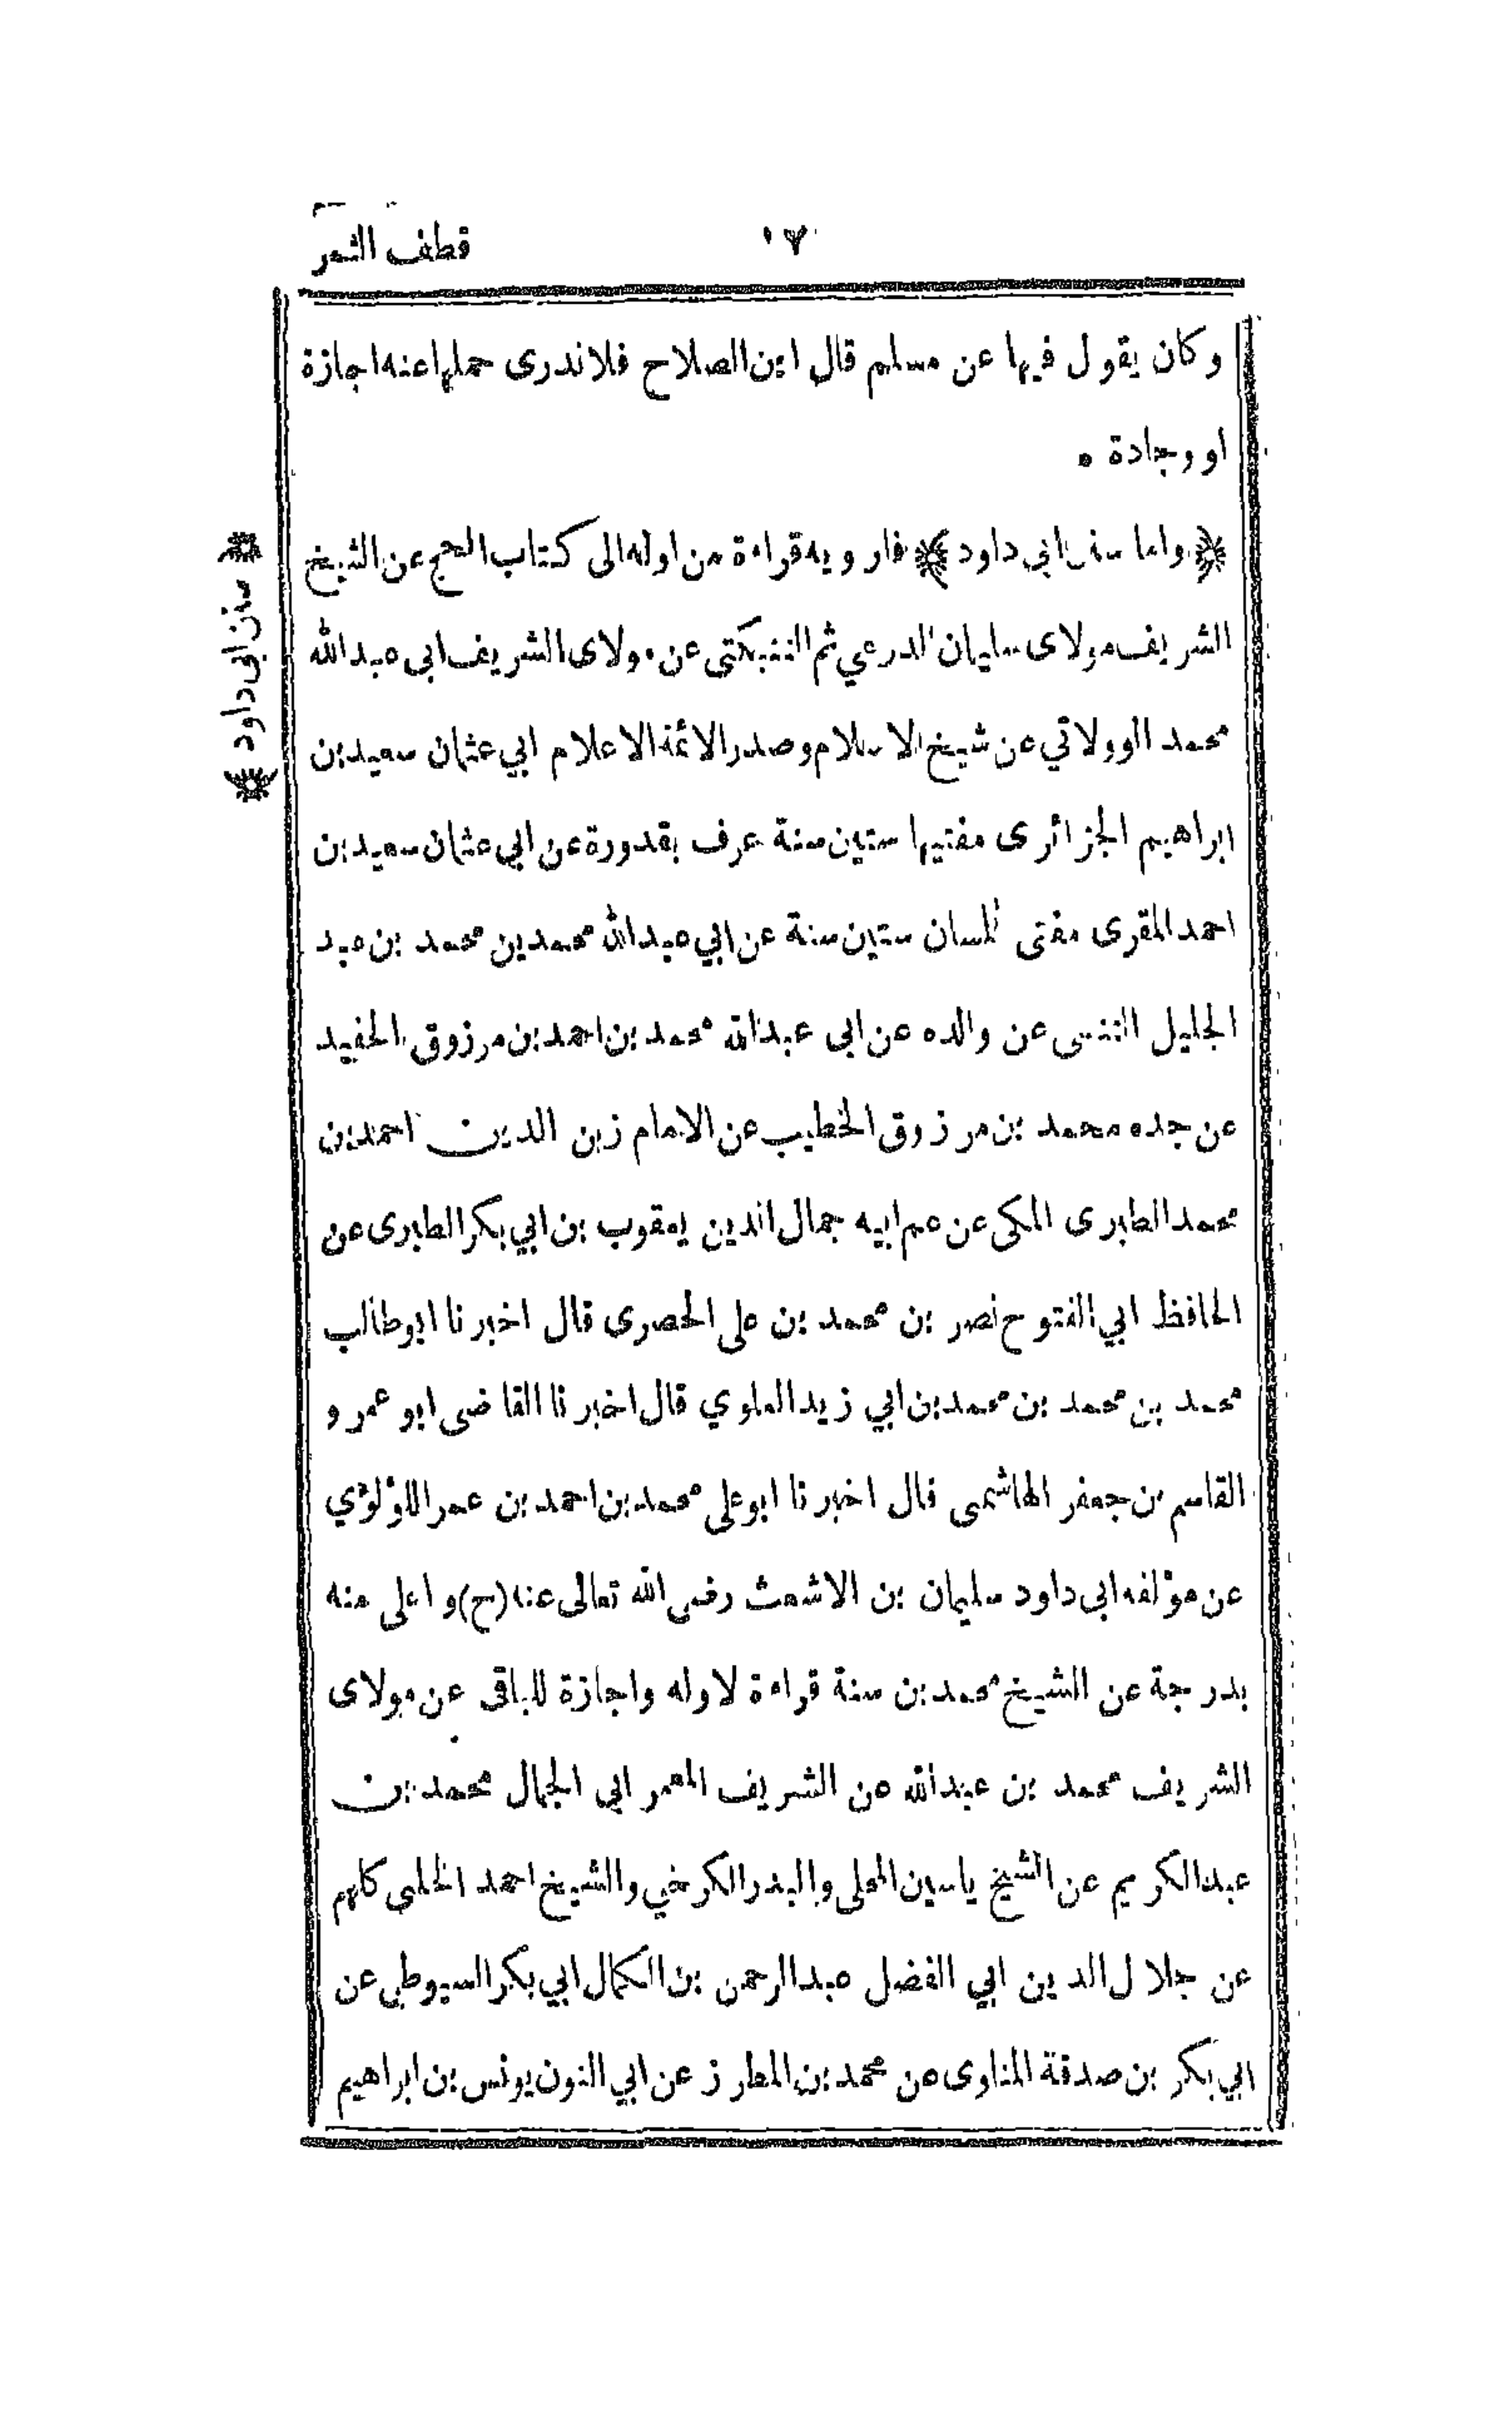 ١٧ قطف الثمر
وكان يقول فيها عن مسلم قال ابن الصلاح فلا ندرى حملها عنه اجازة
او وجادة ٥
﴿واما سنن ابي داود﴾ فارويه قراءة من اوله الى كتاب الحج عن الشيخ
الشريف مولاى سليمان الدرعي ثم التنبكتى عن مولاى الشريف ابى عبدالله
محمد الوولاتي عن شيخ الاسلام وصدر الائمة الاعلام ابي عثمان سعيد بن
ابراهيم الجزائرى مفتيها ستين سنة عرف بقدورة عن ابي عثمان سعيد بن
احمد المقرى مفتى تلمسان ستين سنة عن ابي عبدالله محمد بن محمد بن عبد
الجليل التنسى عن والده عن ابى عبدالله محمد بن احمد بن مرزوق الحفيد
عن جده محمد بن مرزوق الخطيب عن الامام زين الدين احمد بن
محمد الطبرى المكى عن عم ابيه جمال الدين يعقوب بن ابي بكر الطبرى عن
الحافظ ابي الفتوح نصر بن محمد بن على الحصرى قال اخبرنا ابو طالب
محمد بن محمد بن محمد بن ابي زيد العلوي قال اخبرنا القاضى ابو عمرو
القاسم بن جعفر الهاشمى قال اخبرنا ابو على محمد بن احمد بن عمر اللؤلؤي
عن مؤلفه ابى داود سليمان بن الاشعث رضى الله تعالى عنه (ح) و اعلى منه
بدرجة عن الشيخ محمد بن سنة قراءة لاوله واجازة للباقى عن مولاى
الشريف محمد بن عبدالله عن الشريف المعمر ابي الجمال محمد بن
عبدالكريم عن الشيخ ياسين المحلى والبدر الكرخي والشيخ احمد الحلبى كلهم
عن جلال الدين ابي الفضل عبدالرحمن بن الكمال ابي بكر السيوطى عن
ابي بكر بن صدقة المناوى عن محمد بن المطارز عن ابي النون يونس بن ابراهيم
﴿ سنن ابى داود ﴾